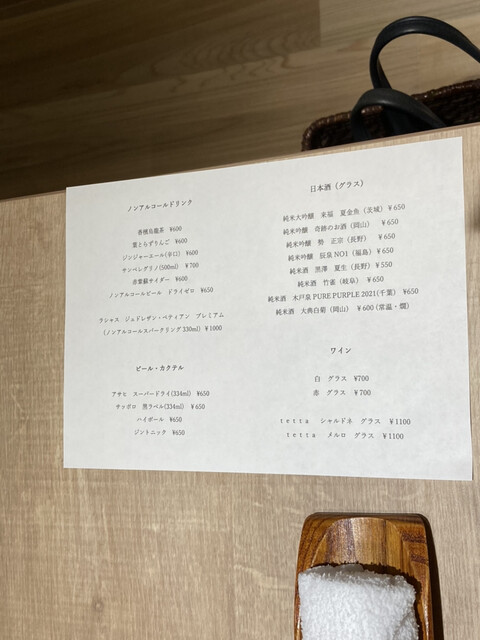 ノンアルコールドリンク
香檳烏龍茶 ¥600
葉とらずりんご ¥600
ジンジャーエール(辛口) ¥600
サンペレグリノ(500ml) ¥700
赤紫蘇サイダー ¥600
ノンアルコールビール ドライゼロ ¥650
ラシャス ジュドレザン・ペティアン プレミアム
(ノンアルコールスパークリング 330ml) ¥1000
ビール・カクテル
アサヒ スーパードライ(334ml) ¥650
サッポロ 黒ラベル(334ml) ¥650
ハイボール ¥650
ジントニック ¥650
日本酒(グラス)
純米大吟醸 来福 夏金魚(茨城) ¥650
純米吟醸 奇跡のお酒(岡山) ¥650
純米吟醸 勢 正宗(長野) ¥650
純米吟醸 辰泉 NO1(福島) ¥650
純米酒 黒澤 夏生(長野) ¥550
純米酒 竹雀(岐阜) ¥650
純米酒 木戸泉 PURE PURPLE 2021(千葉) ¥650
純米酒 大典白菊(岡山) ¥600(常温・燗)
ワイン
白 グラス ¥700
赤 グラス ¥700
tetta シャルドネ グラス ¥1100
tetta メルロ グラス ¥1100